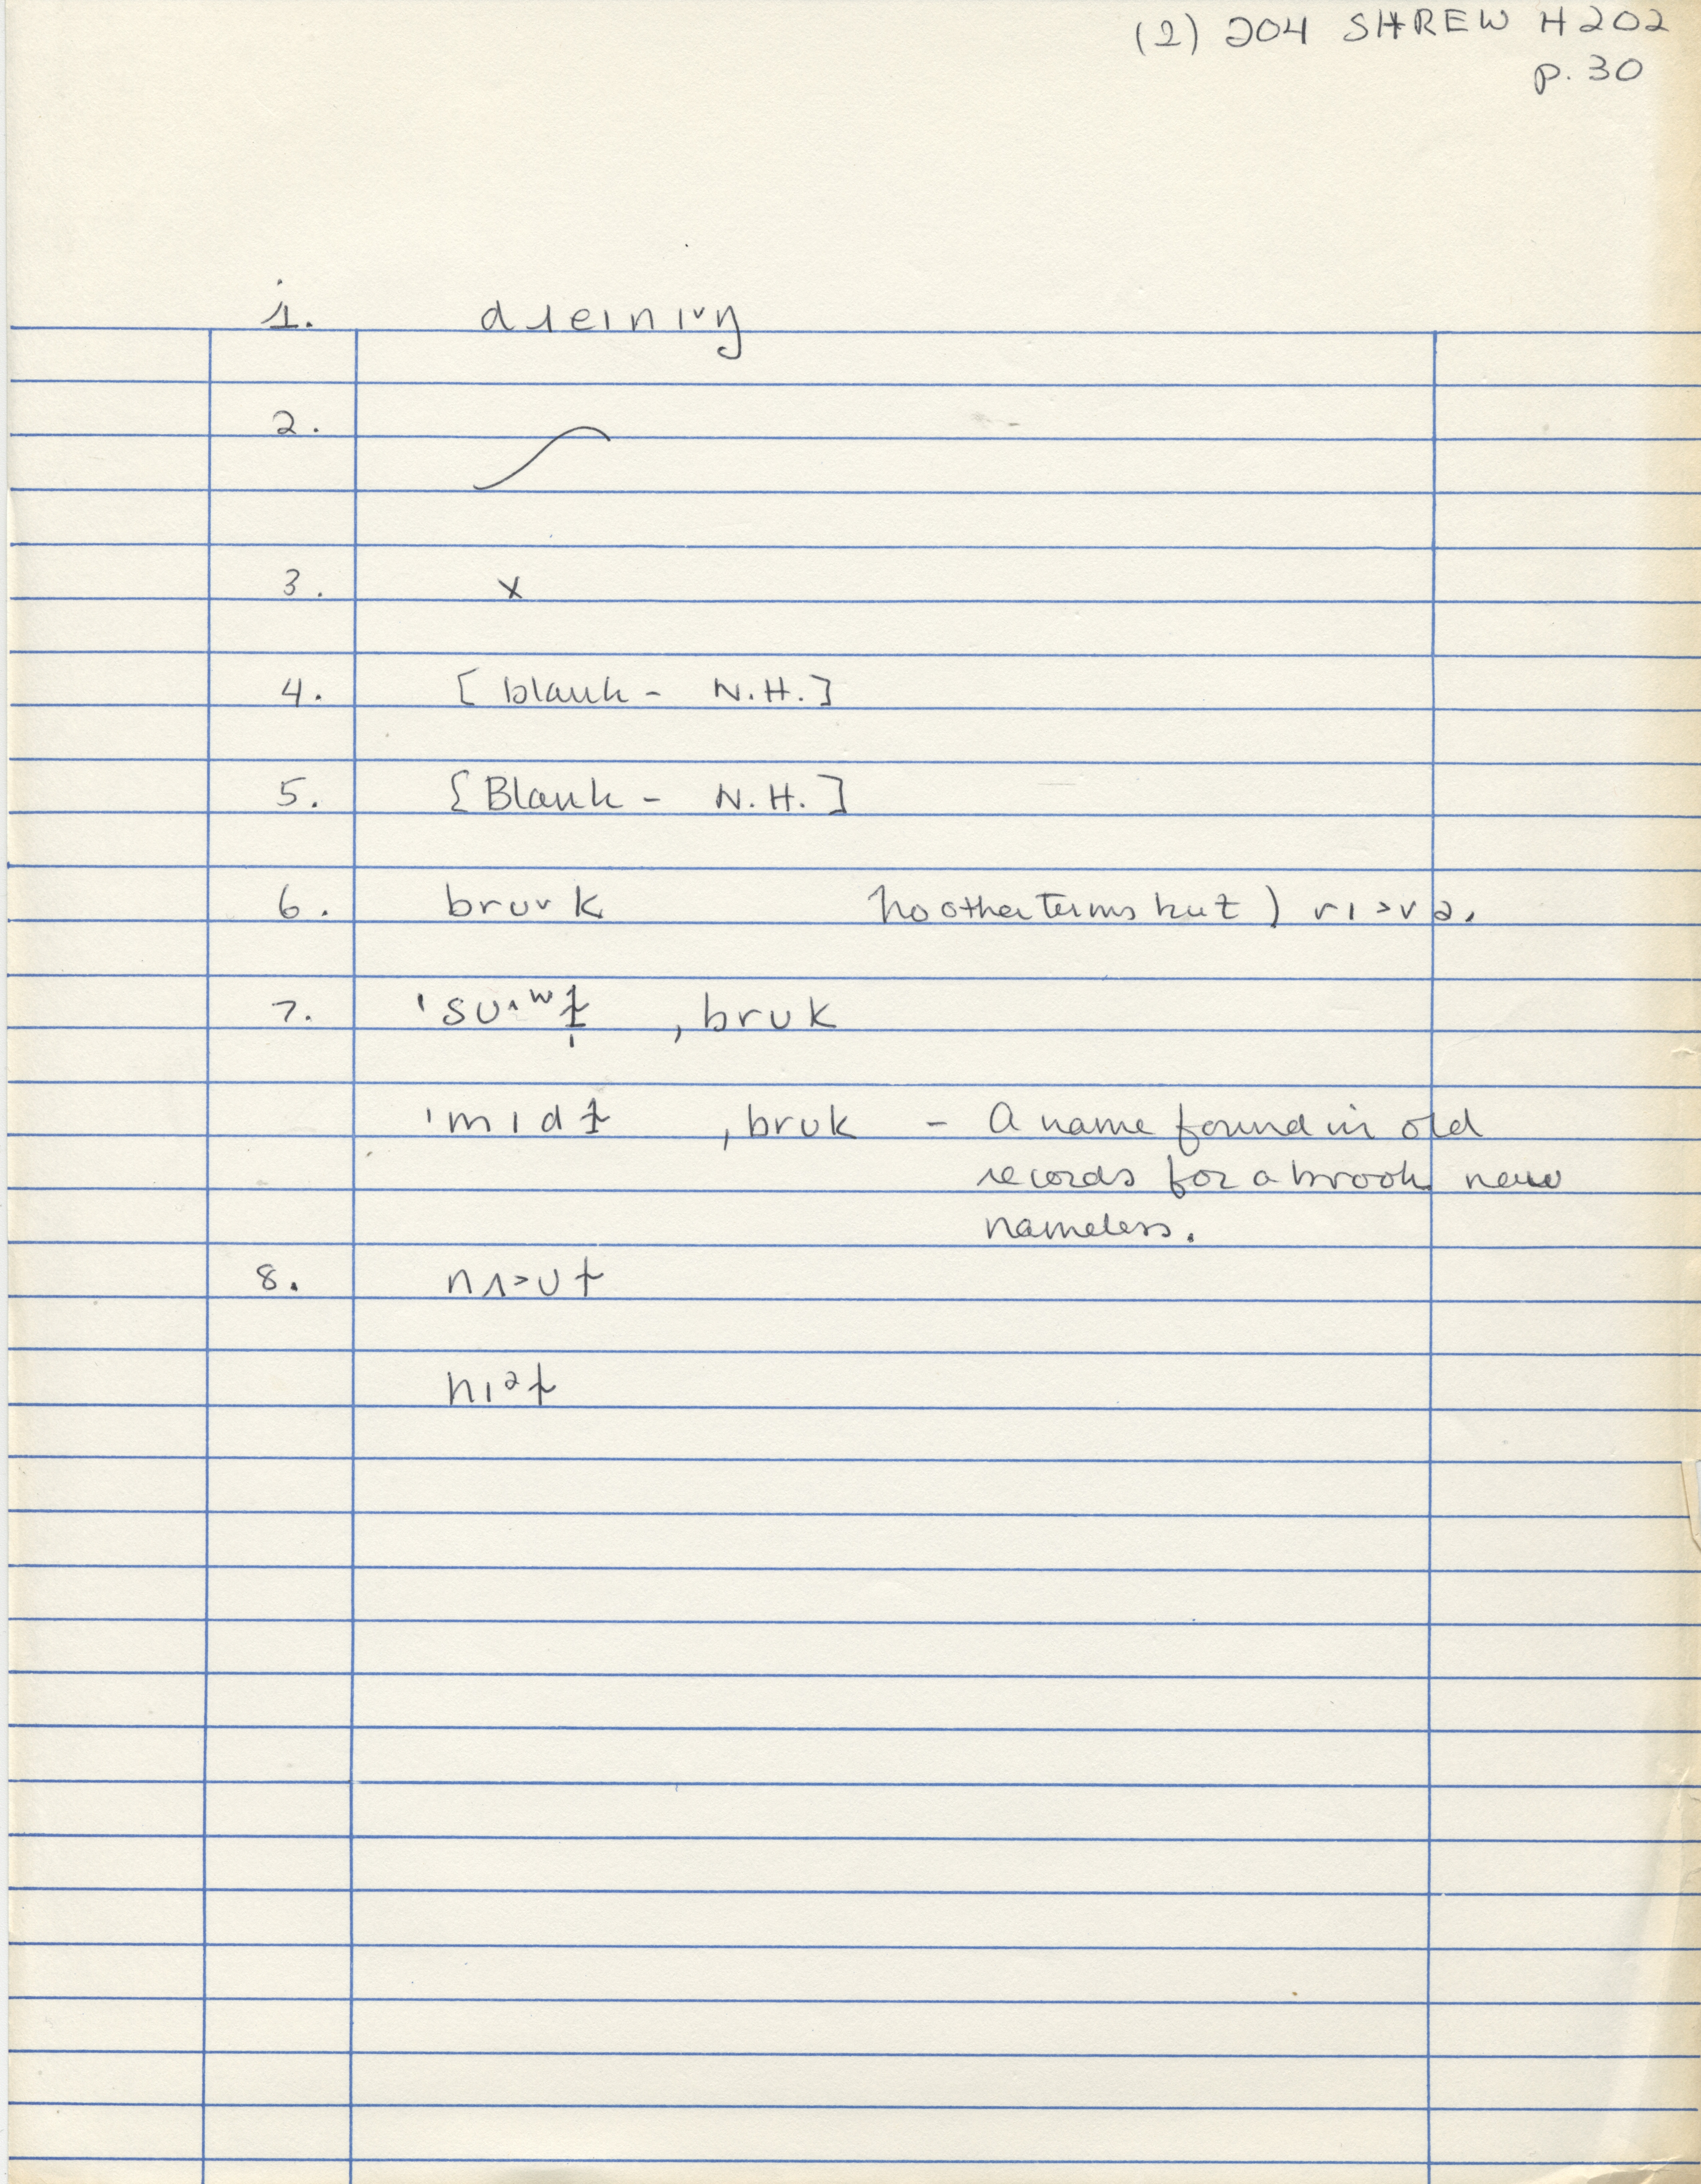 (2) 204 SHREW H202
p. 30
1. dɹeinɪᵛŋ
2.
3. x
4. [blank - N.H.]
5. [Blank - N.H.]
6. bruᵛk no other terms but) rɪ>və.
7. ˈsuᐞʷɫ̩ ˌbruk
ˈmɪdɫ ˌbruk - A name found in old
records for a brook now
nameless.
8. nʌ>ut
nɪᵊt